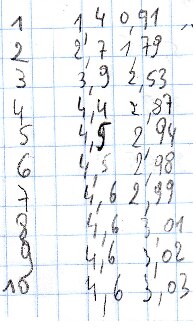 1 1,4 0,91
2 2,7 1,79
3 3,9 2,53
4 4,4 2,87
5 4,5 2,94
6 4,5 2,98
7 4,6 2,99
8 4,6 3,01
9 4,6 3,02
10 4,6 3,03